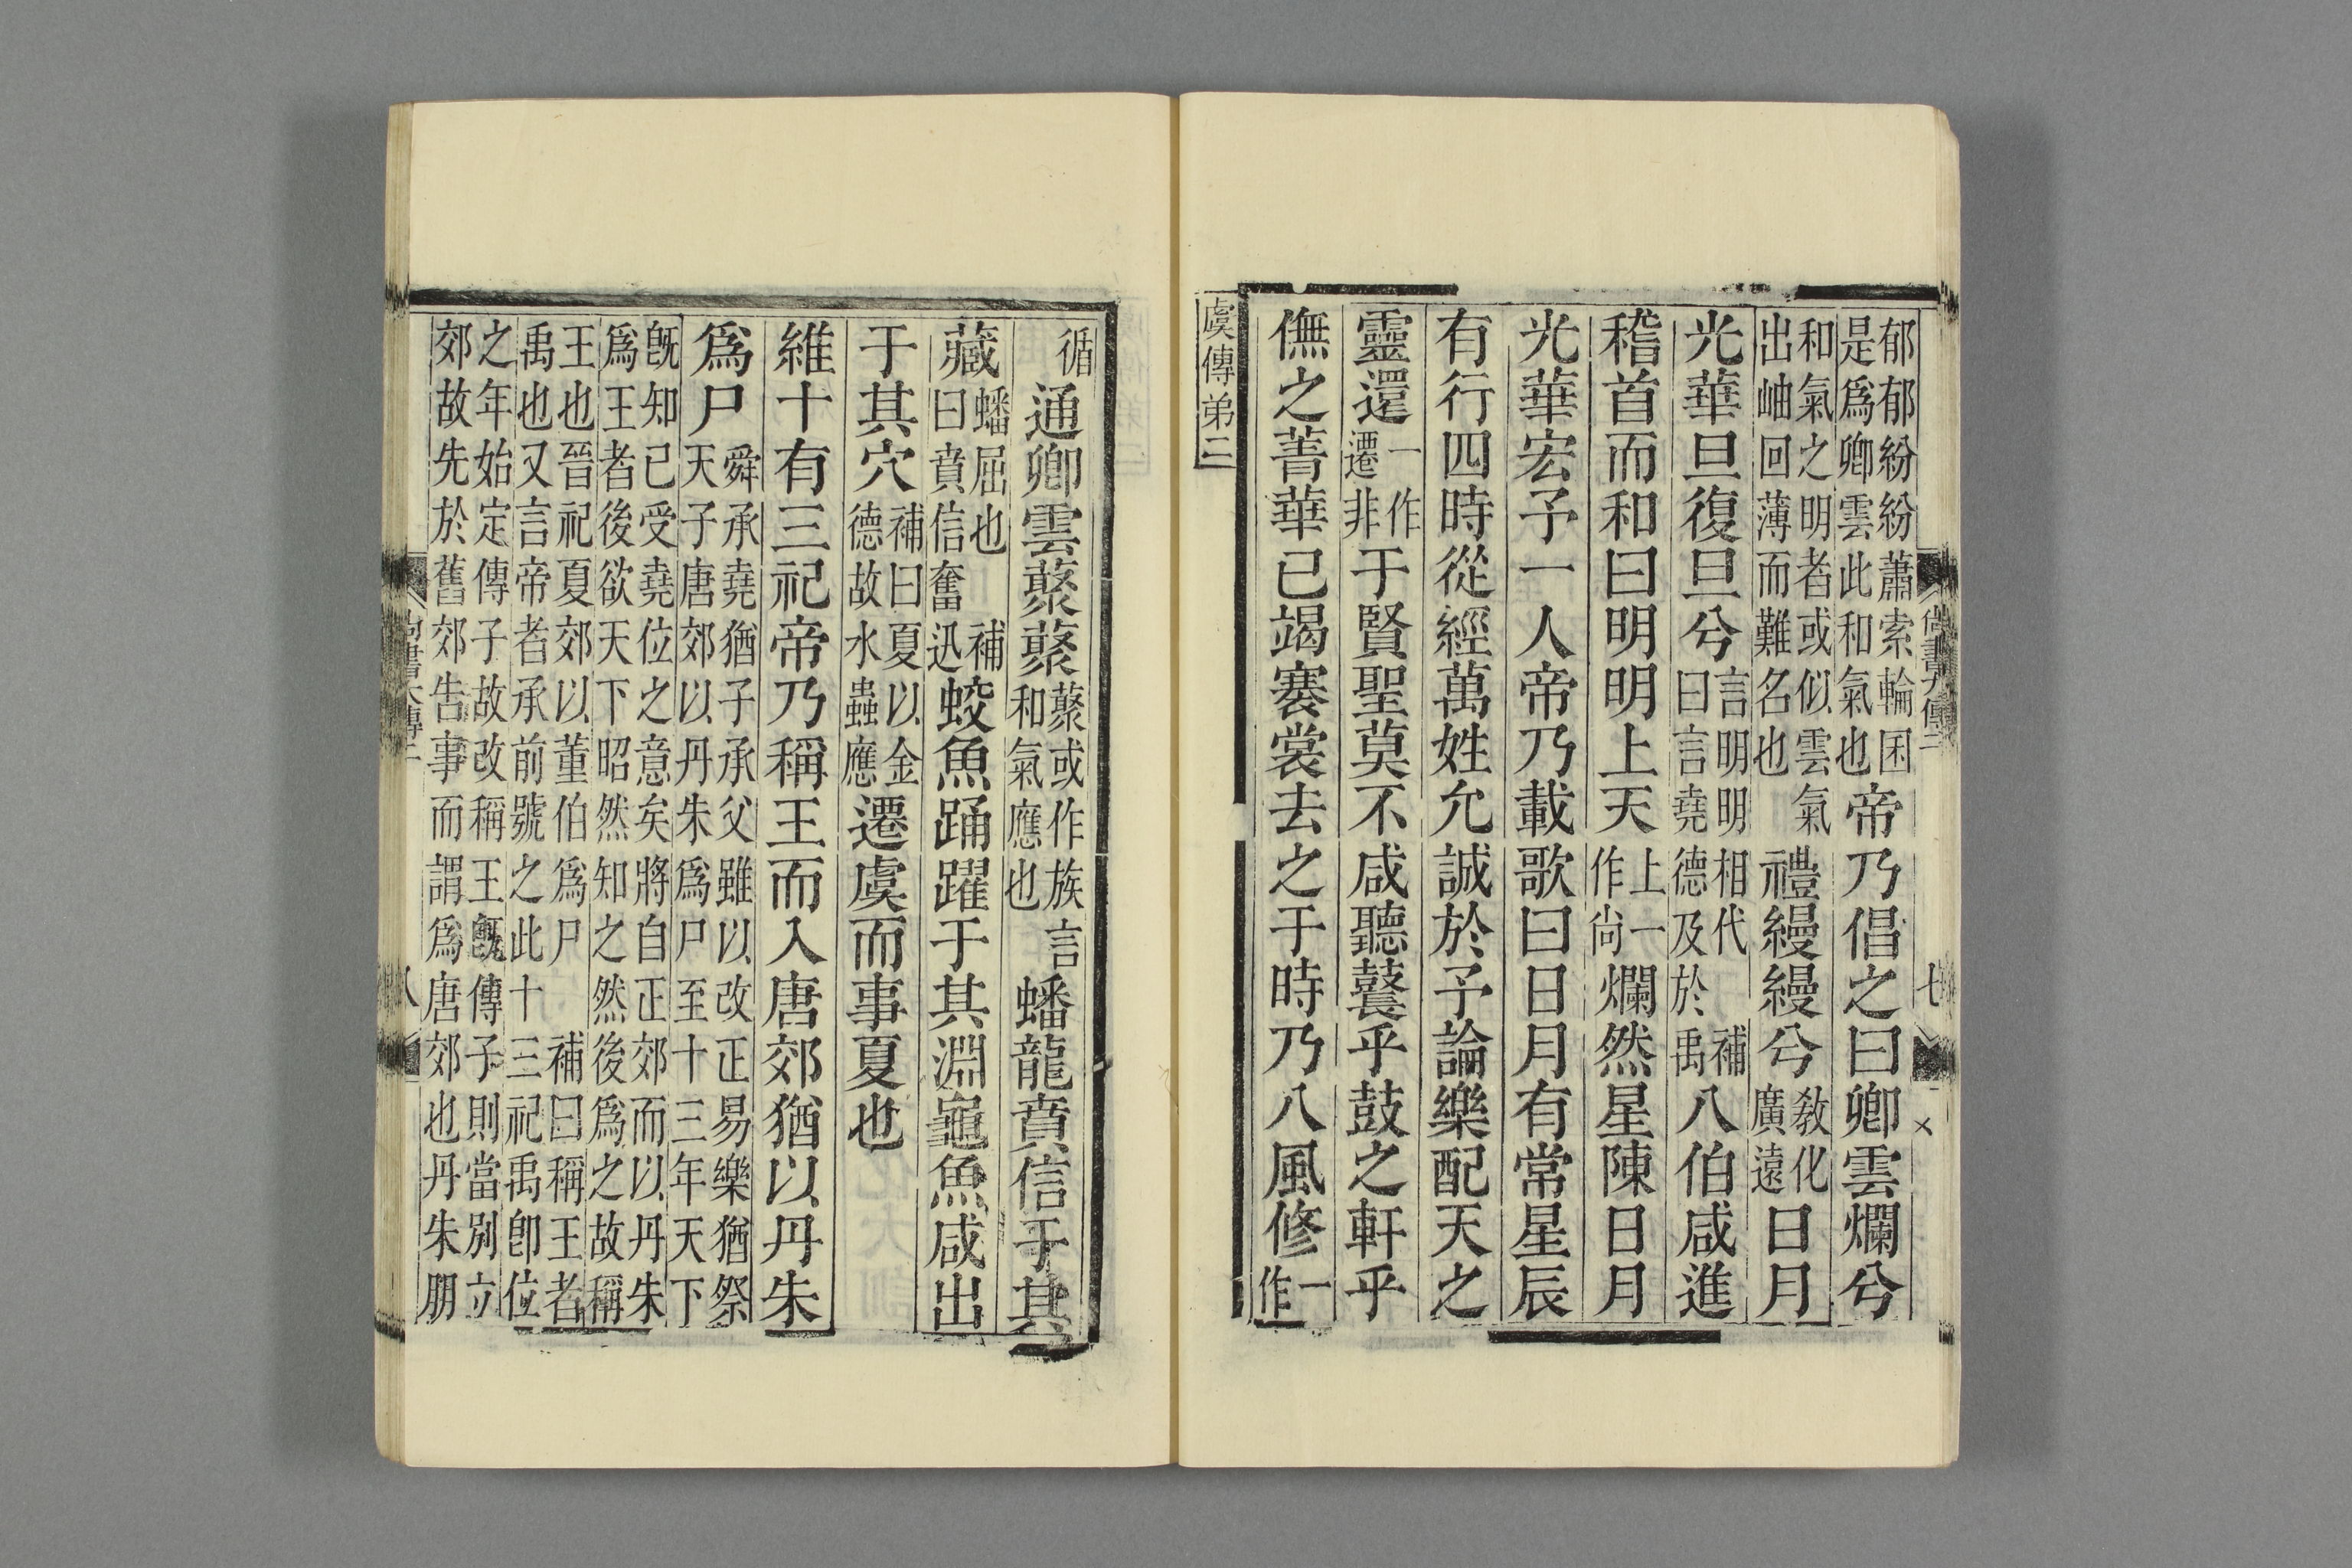 尚書大傳二　七
郁郁紛紛蕭索輪囷是爲卿雲此和氣也帝乃倡之曰卿雲爛兮
和氣之明者或似雲氣出岫回薄而難名也禮縵縵兮教化廣遠日月
光華旦復旦兮言明明相代補曰言堯德及於禹八伯咸進
稽首而和曰明明上天上一作尚爛然星陳日月
光華宏予一人帝乃載歌曰日月有常星辰
有行四時從經萬姓允誠於予論樂配天之
靈還一作遷非于賢聖莫不咸聽鼚乎鼓之軒乎
儛之菁華已竭褰裳去之于時乃八風修一作
虞傳弟二
循通卿雲藂藂藂或作族言和氣應也蟠龍賁信于其
藏蟠屈也補曰賁信奮迅蛟魚踊躍于其淵龜魚咸出
于其穴補曰夏以金德故水蟲應遷虞而事夏也
維十有三祀帝乃稱王而入唐郊猶以丹朱
爲尸舜承堯猶子承父雖以改正易樂猶祭天子唐郊以丹朱爲尸至十三年天下
旣知已受堯位之意矣將自正郊而以丹朱爲王者後欲天下昭然知之然後爲之故稱
王也晉祀夏郊以董伯爲尸補曰稱王者禹也又言帝者承前號之此十三祀禹卽位
之年始定傳子故改稱王旣傳子則當別立郊故先於舊郊告事而謂爲唐郊也丹朱朋
尚書大傳二　八